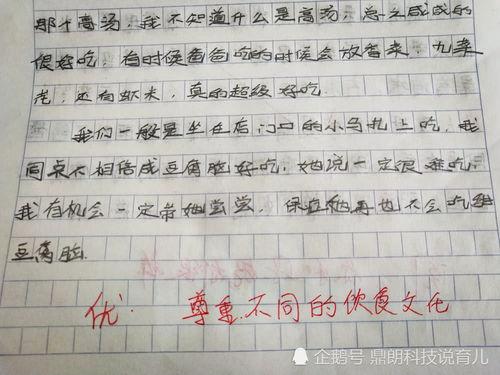 那个高汤，我不知道什么是高汤，总之咸咸的
很好吃，有时候爸爸吃的时候会放香菜，九菜
花，还有虾米，真的超级好吃
我们一般是坐在店门口的小马扎上吃，我
同桌不相信咸豆腐脑好吃，她说一定很难吃，
我有机会一定带她尝尝，保证她再也不会吃甜
豆腐脑
优 尊重不同的饮食文化
企鹅号 鼎朗科技说育儿